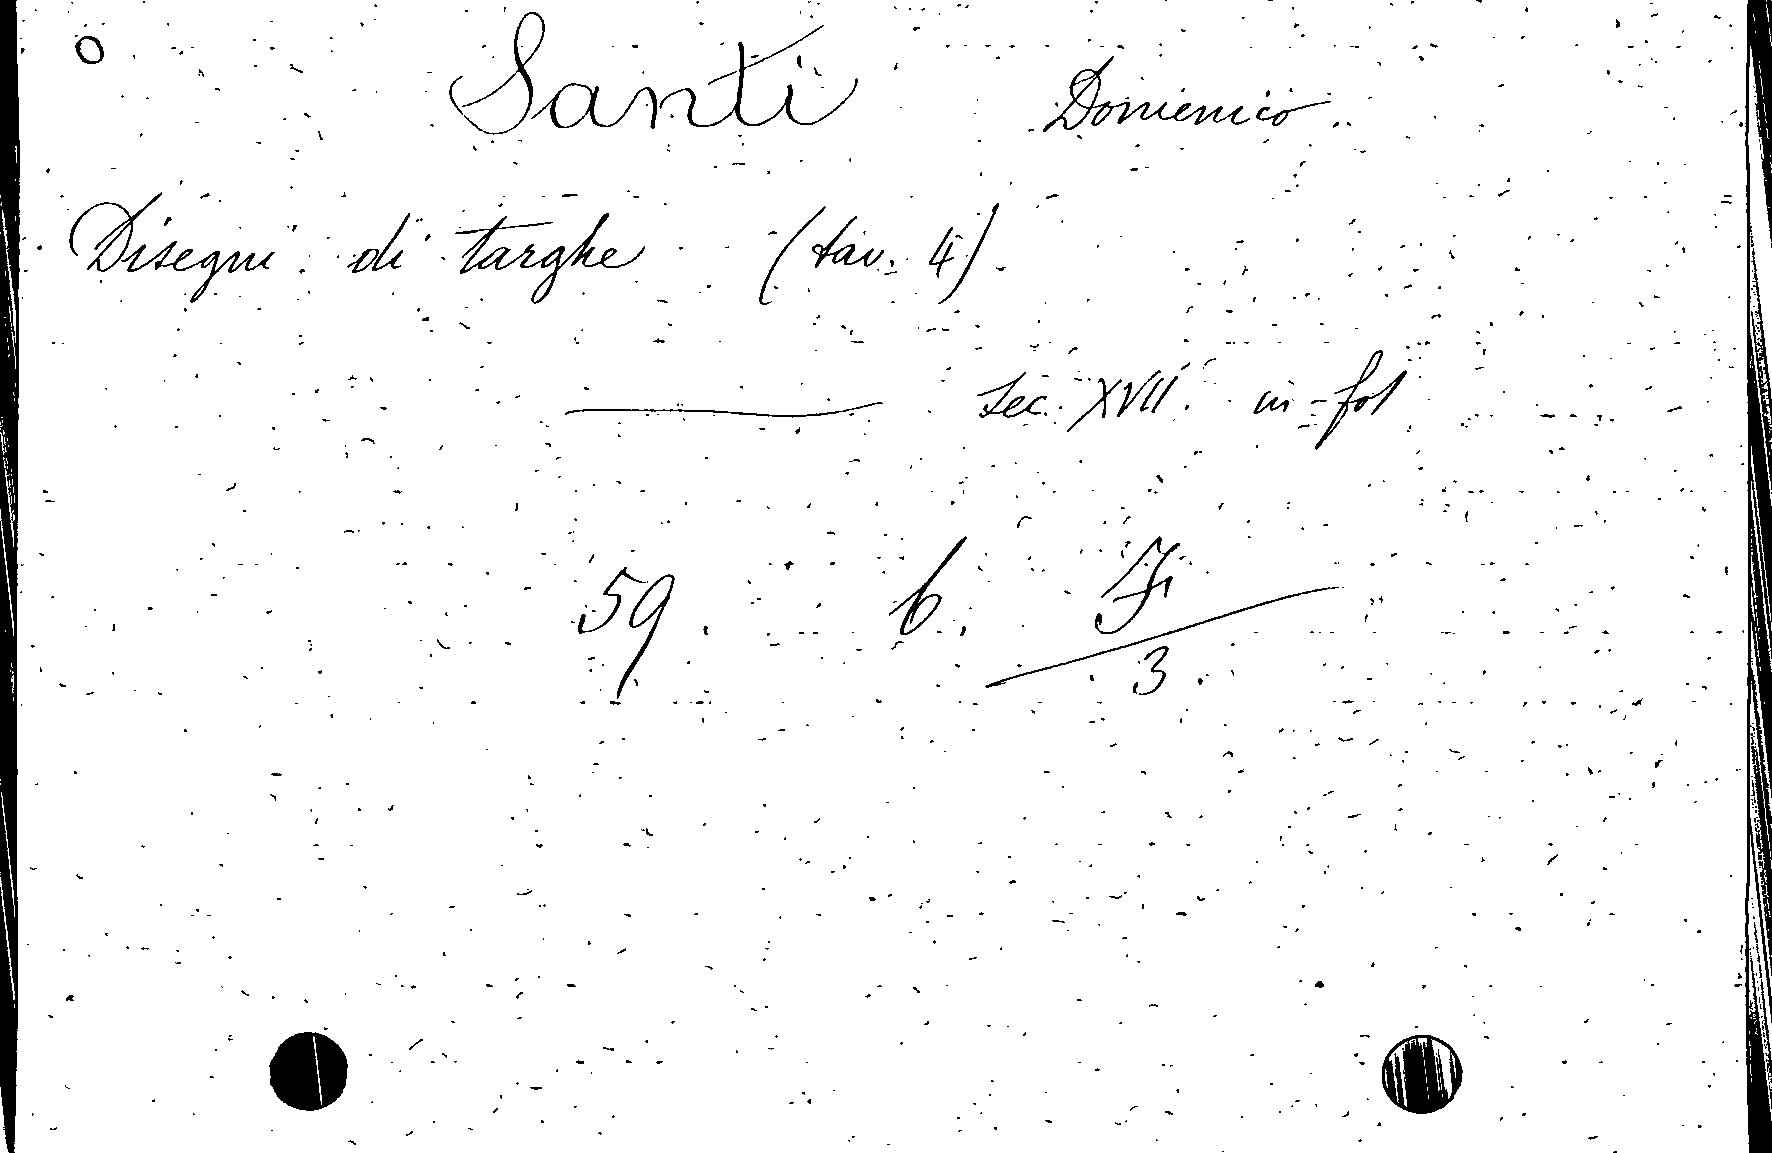 O
Santi Domenico.
Disegni di targhe (tav. 4)
sec. XVII. in-fol
59. 6. F/3.